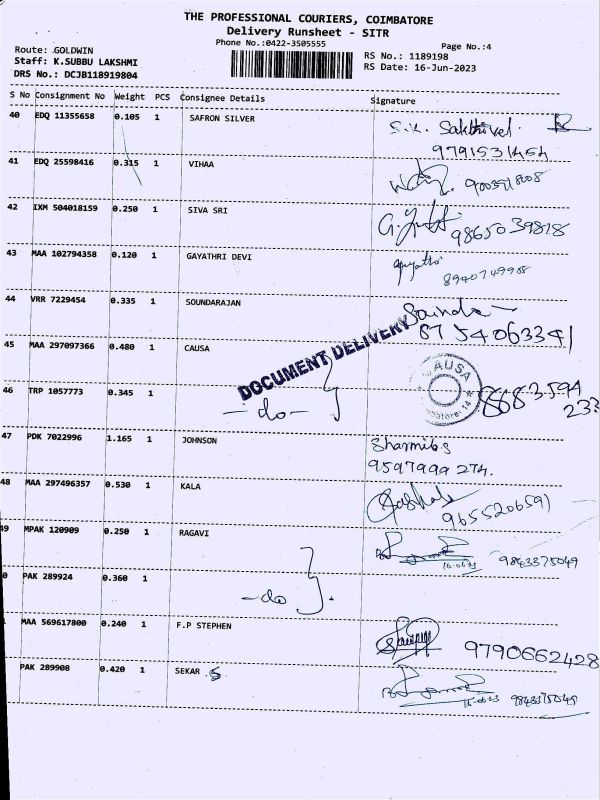 THE PROFESSIONAL COURIERS, COIMBATORE
Delivery Runsheet - SITR
Phone No.:0422-3505555
Page No.:4
Route: GOLDWIN
RS No.: 1189198
Staff: K.SUBBU LAKSHMI
RS Date: 16-Jun-2023
DRS No.: DCJB118919804
S No Consignment No Weight PCS Consignee Details Signature
40 EDQ 11355658 0.105 1 SAFRON SILVER S.K. Sakthivel
9791531454
41 EDQ 25598416 0.315 1 VIHAA
42 IXM 504018159 0.250 1 SIVA SRI 9865039818
43 MAA 102794358 0.120 1 GAYATHRI DEVI
8940749908
44 VRR 7229454 0.335 1 SOUNDARAJAN
8754063341
45 MAA 297097366 0.480 1 CAUSA
DOCUMENT DELIVERY
CAUSA
46 TRP 1057773 0.345 1 -do- 8683594
233
47 PDK 7022996 1.165 1 JOHNSON Sharmila.s
9597999274.
48 MAA 297496357 0.530 1 KALA
9655206591
49 MPAK 120909 0.250 1 RAGAVI
16.06.23 9843375049
0 PAK 289924 0.360 1 -do-
MAA 569617800 0.240 1 F.P STEPHEN
9790662428
PAK 289908 0.420 1 SEKAR .S
9843375049